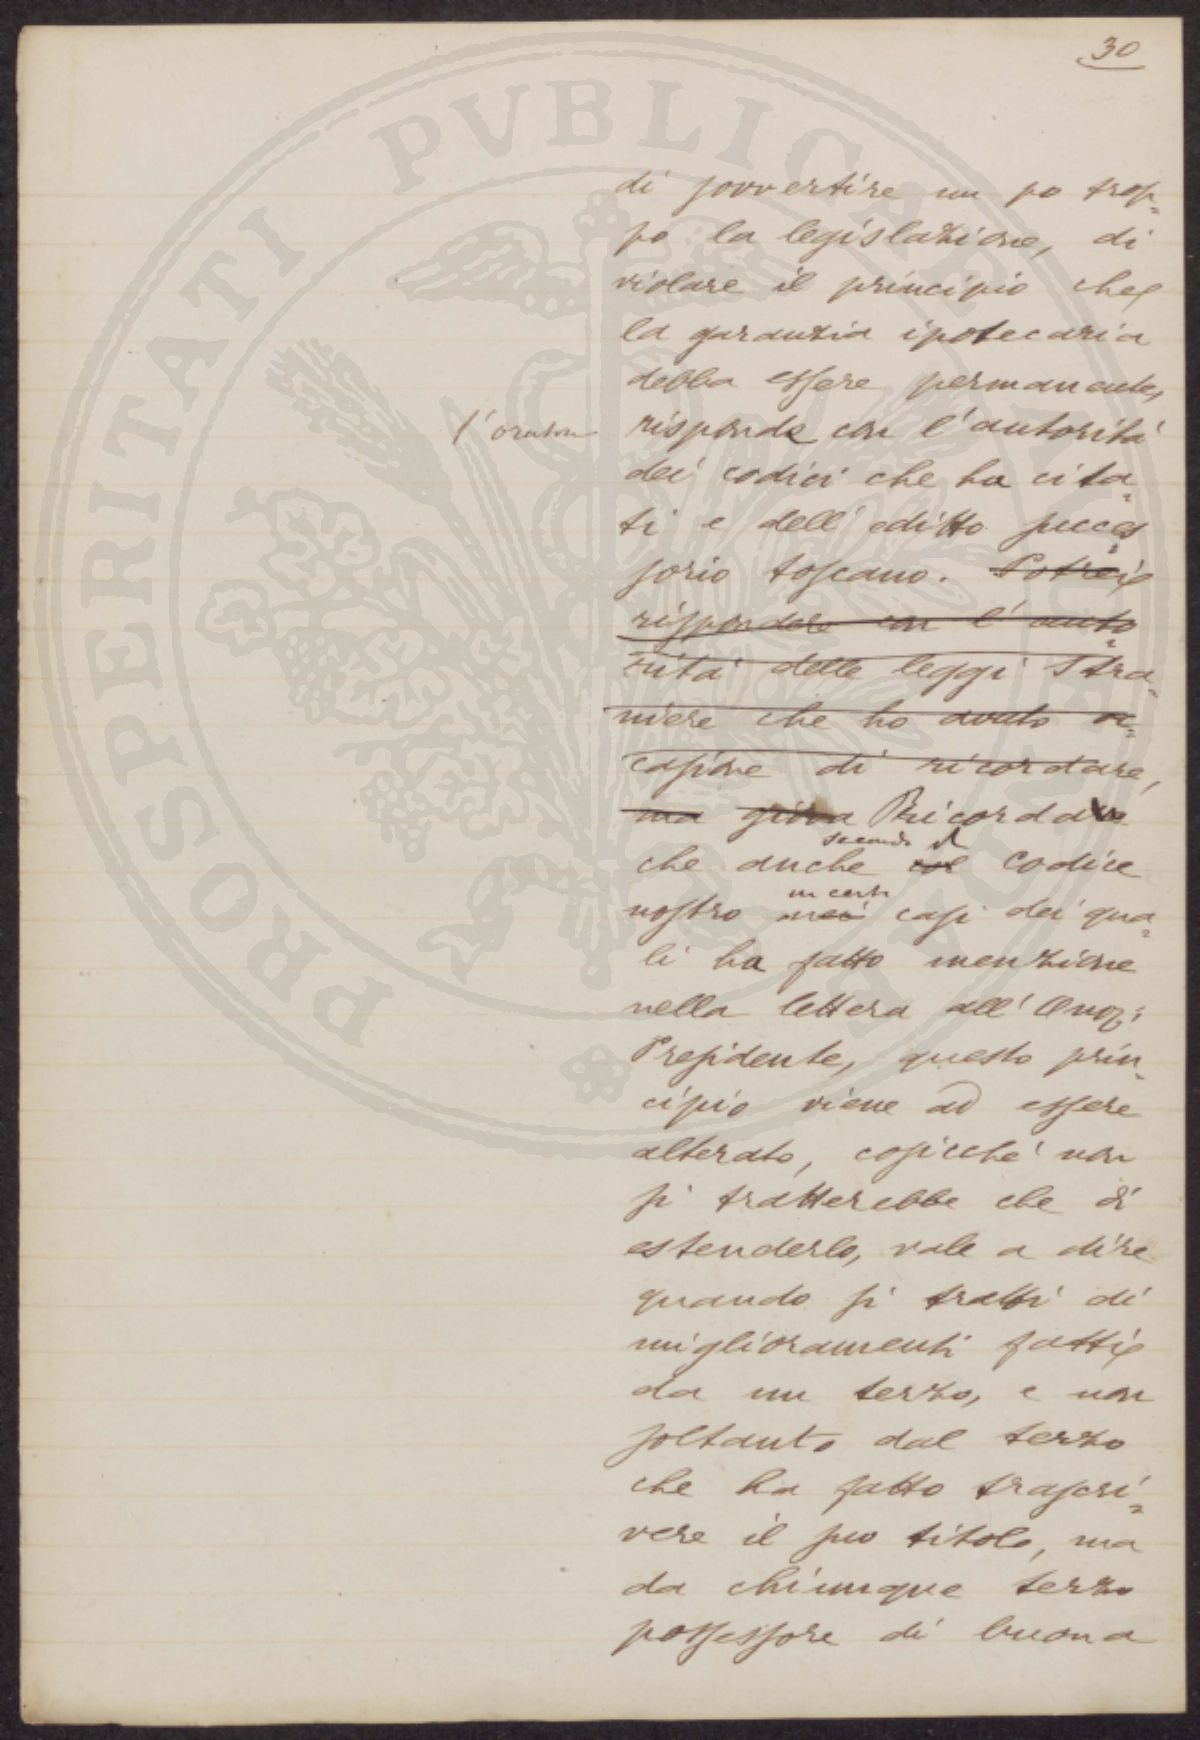 30
di sovvertire un po trop=
po la legislazione, di
violare il principio che
la garanzia ipotecaria
debba essere permanente,
l'oratore risponde con l'autorità
dei codici che ha cita=
ti e dell'editto succes=
sorio toscano. Potrei
rispondere con l'auto=
rità delle leggi stra=
niere che ho avuto oc=
casione di ricordare,
ma giova Ricorda
secondo il
che anche col Codice
in certi
nostro nei casi dei qua=
li ha fatto menzione
nella lettera all'Onor:
Presidente, questo prin=
cipio viene ad essere
alterato, cosicché non
si tratterebbe che di
estenderlo, vale a dire
quando si tratti di
miglioramenti fatti
da un terzo, e non
soltanto dal terzo
che ha fatto trascri=
vere il suo titolo, ma
da chiunque terzo
possessore di buona
PROSPERITATI PVBLICAE